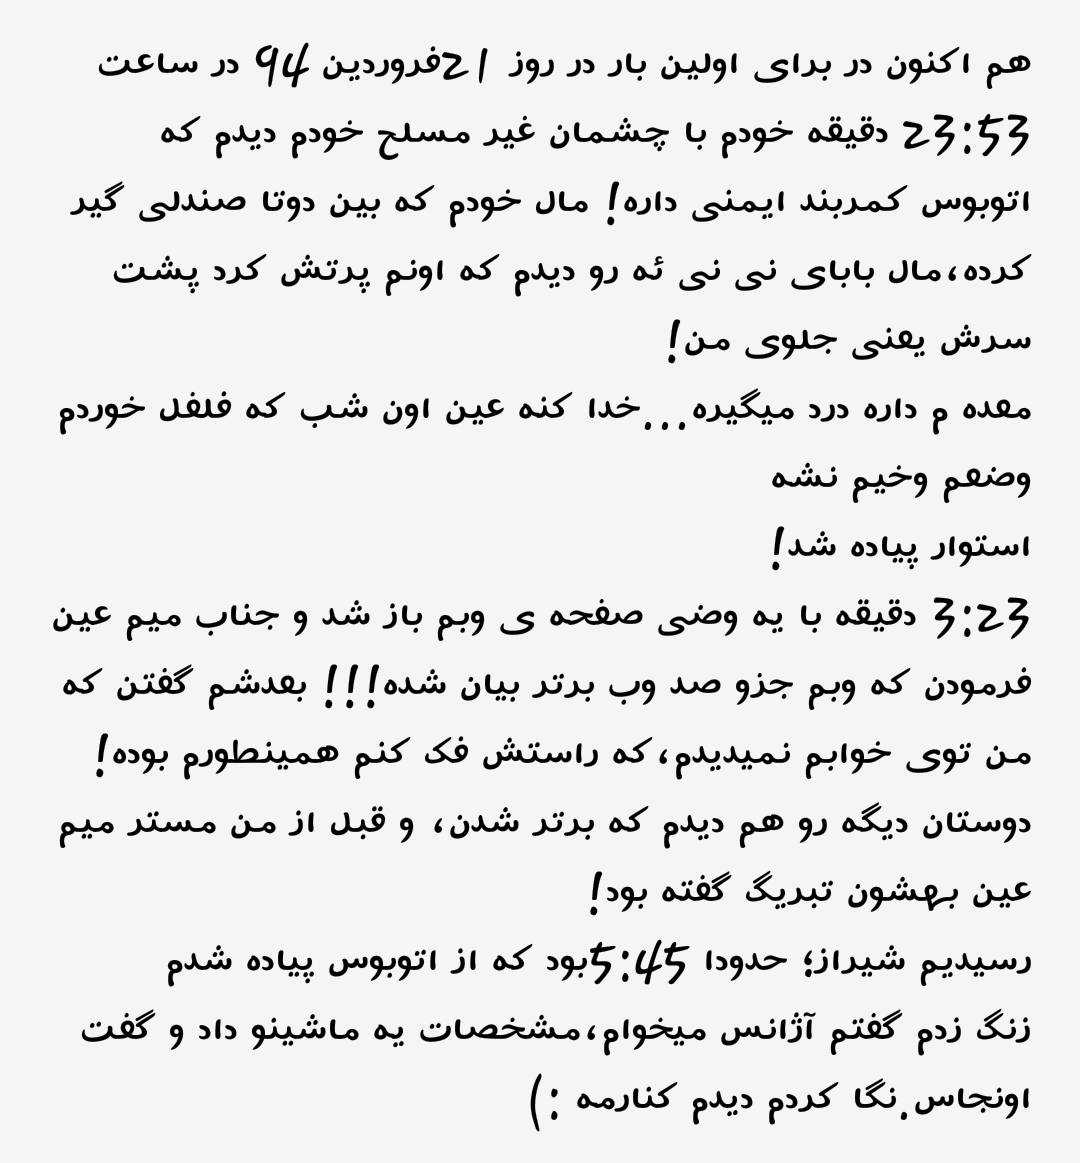 هم اکنون در برای اولین بار در روز 21فروردین 94 در ساعت
23:53 دقیقه خودم با چشمان غیر مسلح خودم دیدم که
اتوبوس کمربند ایمنی داره! مال خودم که بین دوتا صندلی گیر
کرده،مال بابای نی نی ئه رو دیدم که اونم پرتش کرد پشت
سرش یعنی جلوی من!
معده م داره درد میگیره...خدا کنه عین اون شب که فلفل خوردم
وضعم وخیم نشه
استوار پیاده شد!
3:23 دقیقه با یه وضی صفحه ی وبم باز شد و جناب میم عین
فرمودن که وبم جزو صد وب برتر بیان شده!!! بعدشم گفتن که
من توی خوابم نمیدیدم،که راستش فک کنم همینطورم بوده!
دوستان دیگه رو هم دیدم که برتر شدن، و قبل از من مستر میم
عین بهشون تبریگ گفته بود!
رسیدیم شیراز؛ حدودا 5:45بود که از اتوبوس پیاده شدم
زنگ زدم گفتم آژانس میخوام،مشخصات یه ماشینو داد و گفت
اونجاس.نگا کردم دیدم کنارمه :)